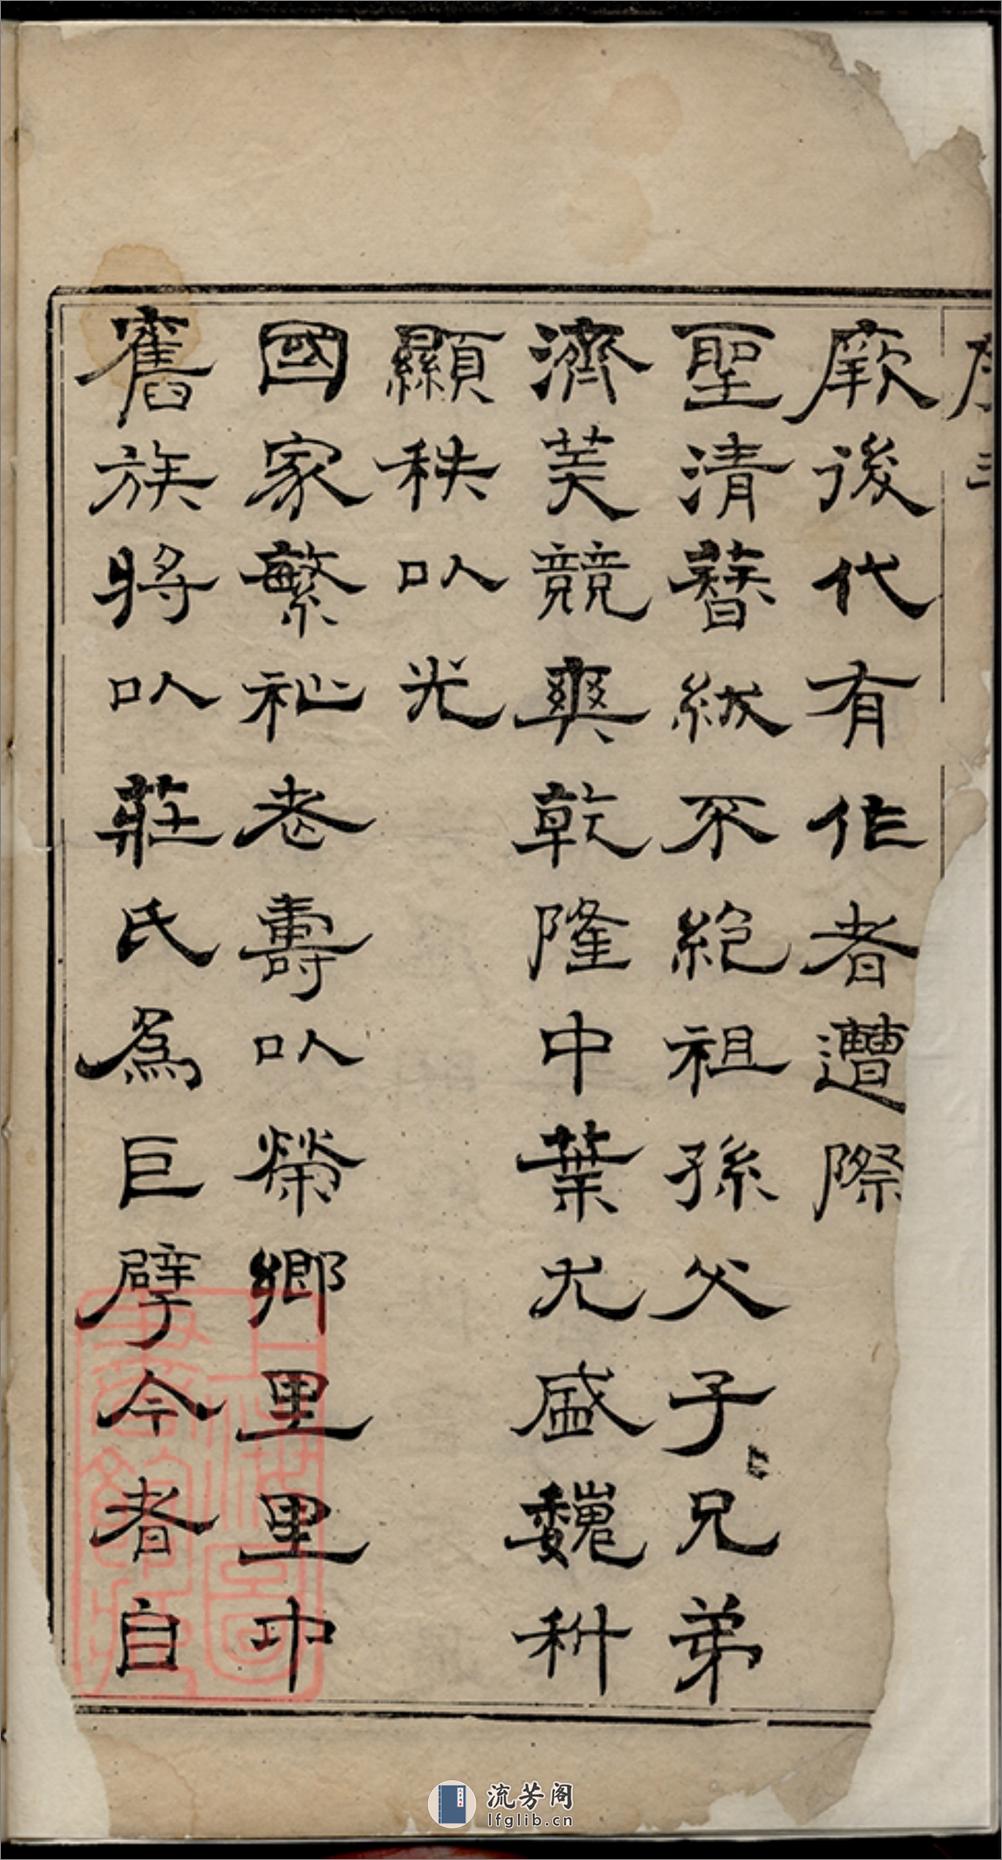 序 三
厥後代有作者遭際
聖清簪紱不絕祖孫父子兄弟
濟美競爽乾隆中葉尤盛巍科
顯秩以光
國家繁祉老壽以榮鄉里里中
舊族將以莊氏為巨擘今者自
流芳阁
lfglib.cn